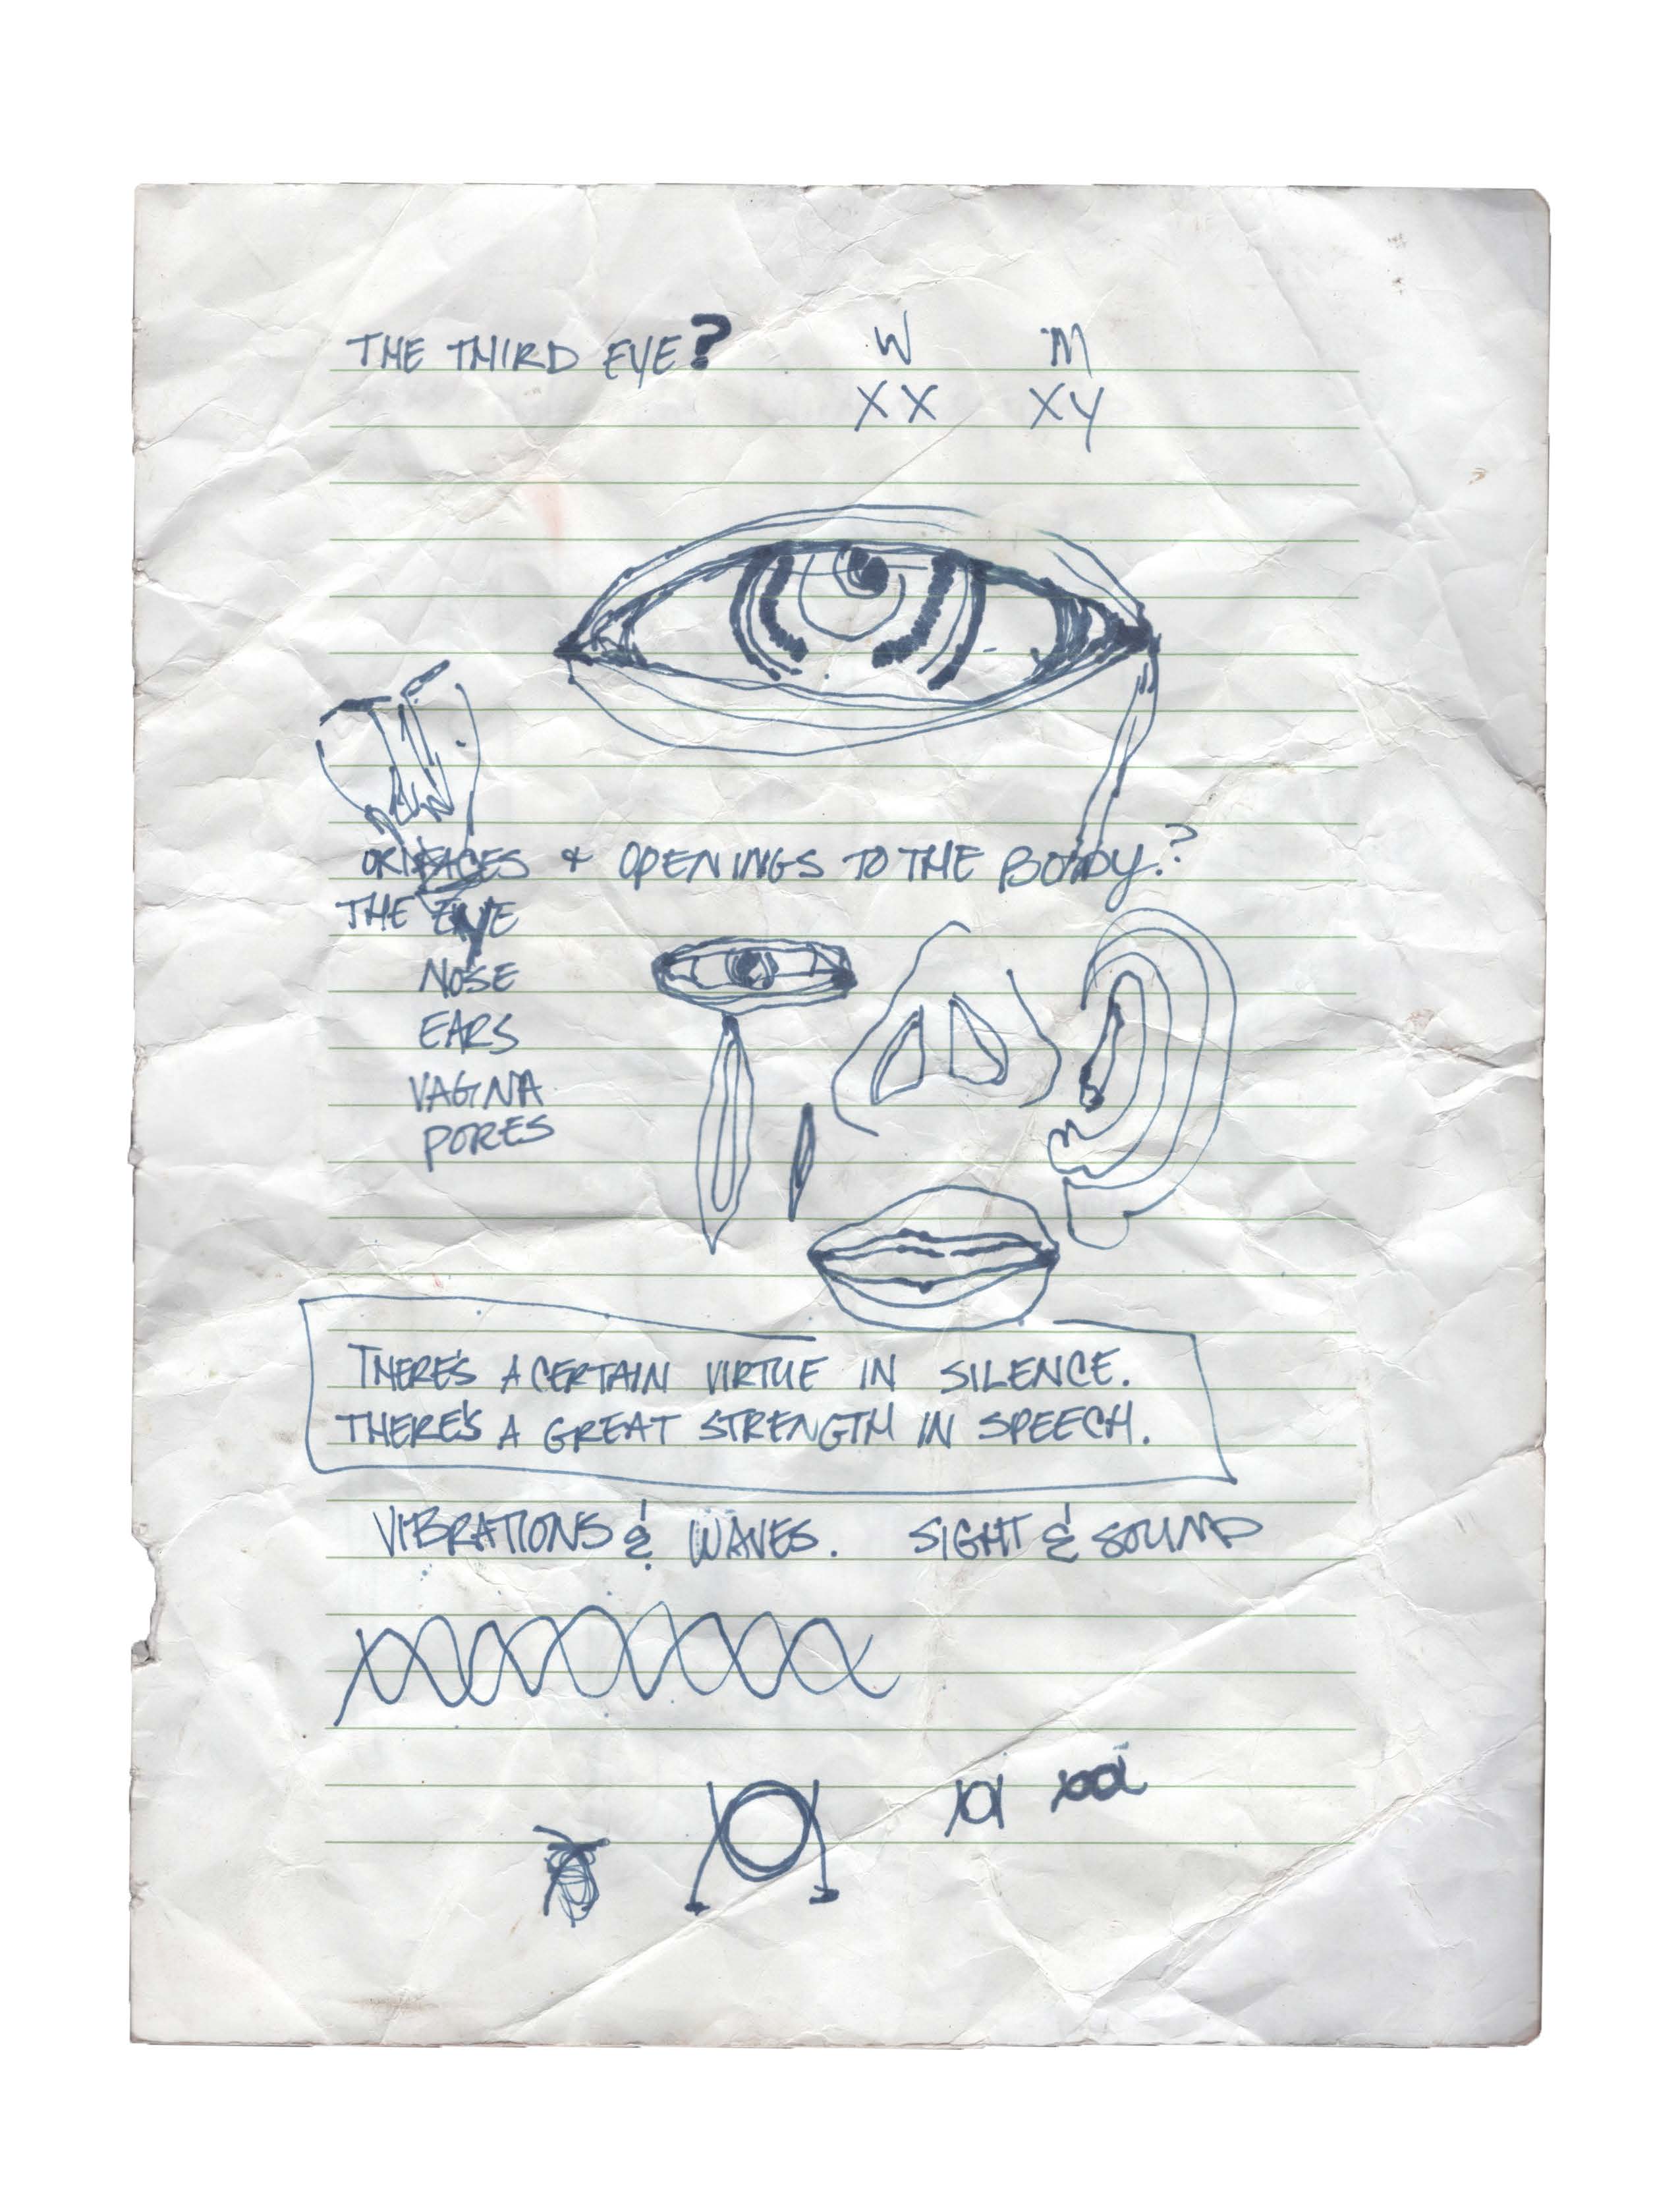 THE THIRD EYE? W M
XX XY
ORIFACES & OPENINGS TO THE BODY?
THE EYE
NOSE
EARS
VAGINA
PORES
THERE'S A CERTAIN VIRTUE IN SILENCE.
THERE'S A GREAT STRENGTH IN SPEECH.
VIBRATIONS & WAVES. SIGHT & SOUND